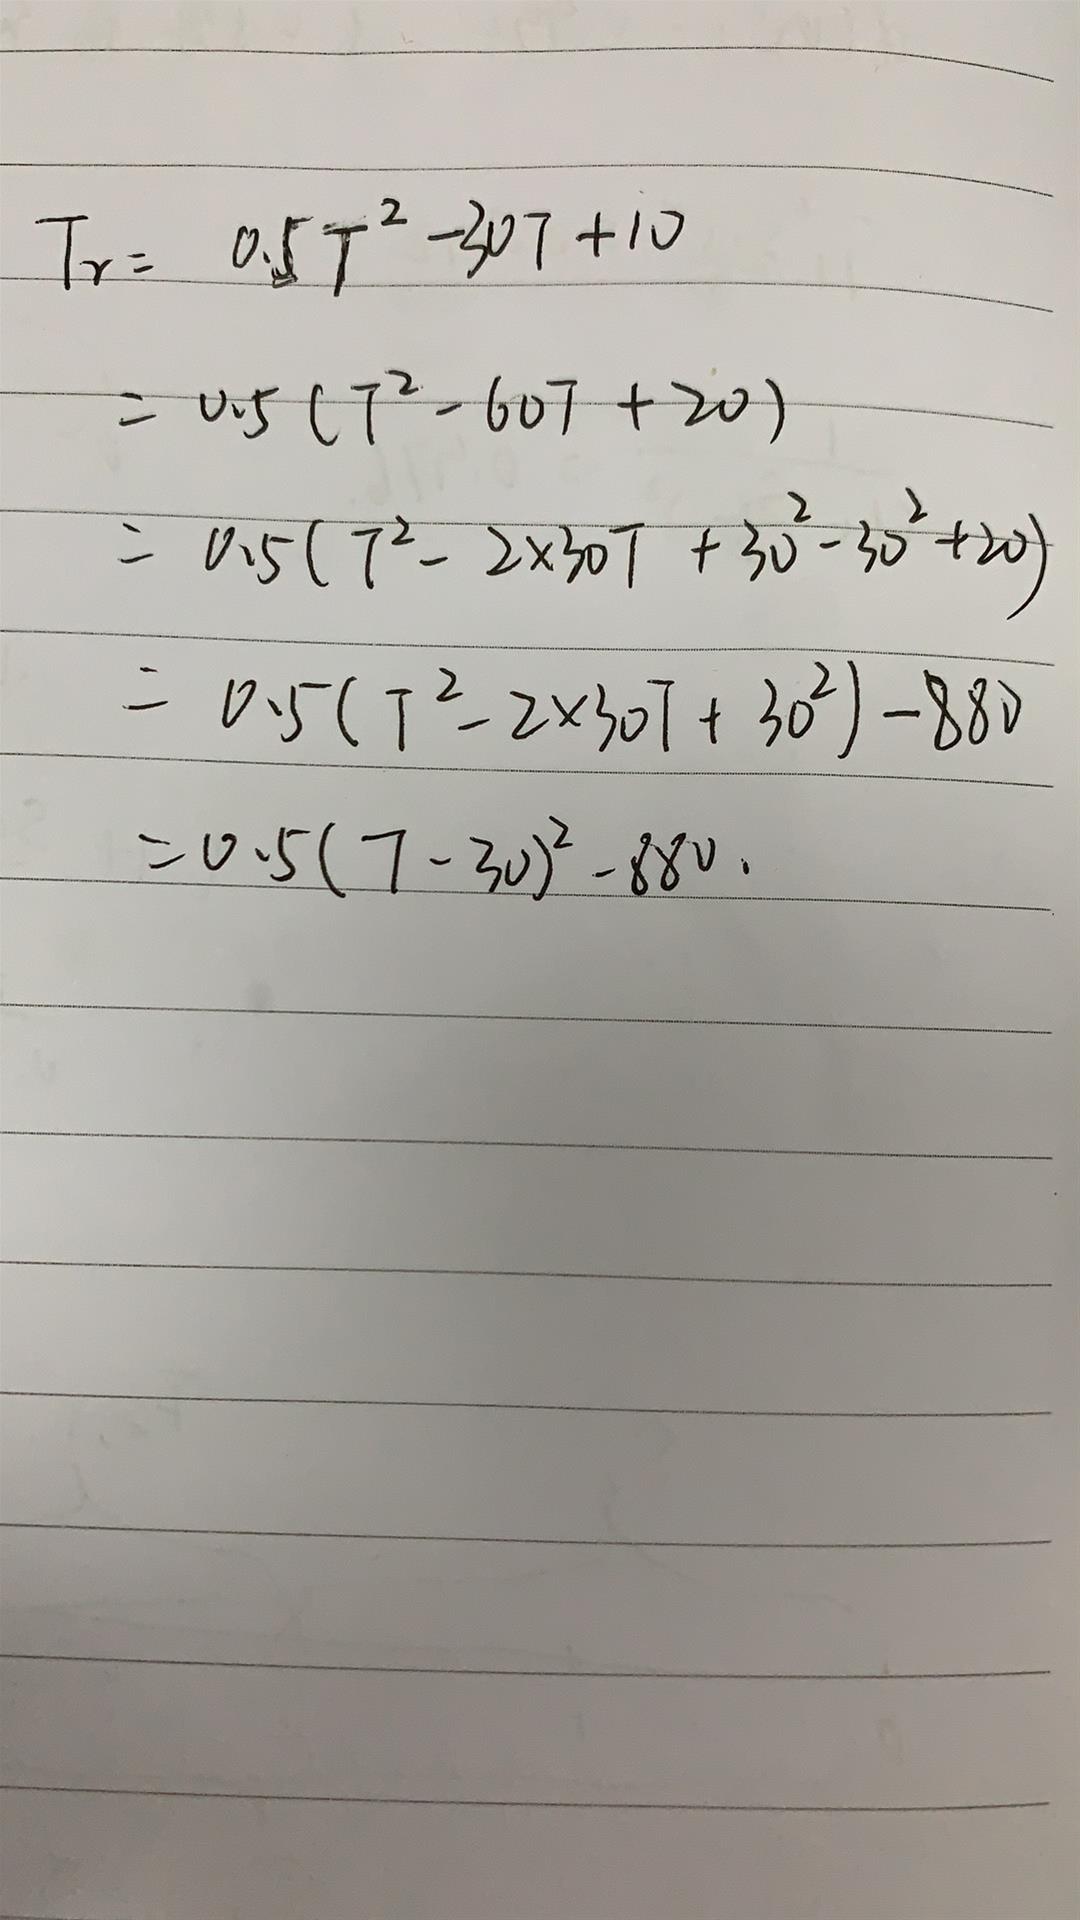 Tr = 0.5T² -30T +10
= 0.5 ( T² - 60T + 20 )
= 0.5 ( T² - 2×30T + 30² - 30² + 20 )
= 0.5 ( T² - 2×30T + 30² ) - 880
= 0.5 ( T - 30 )² - 880 .